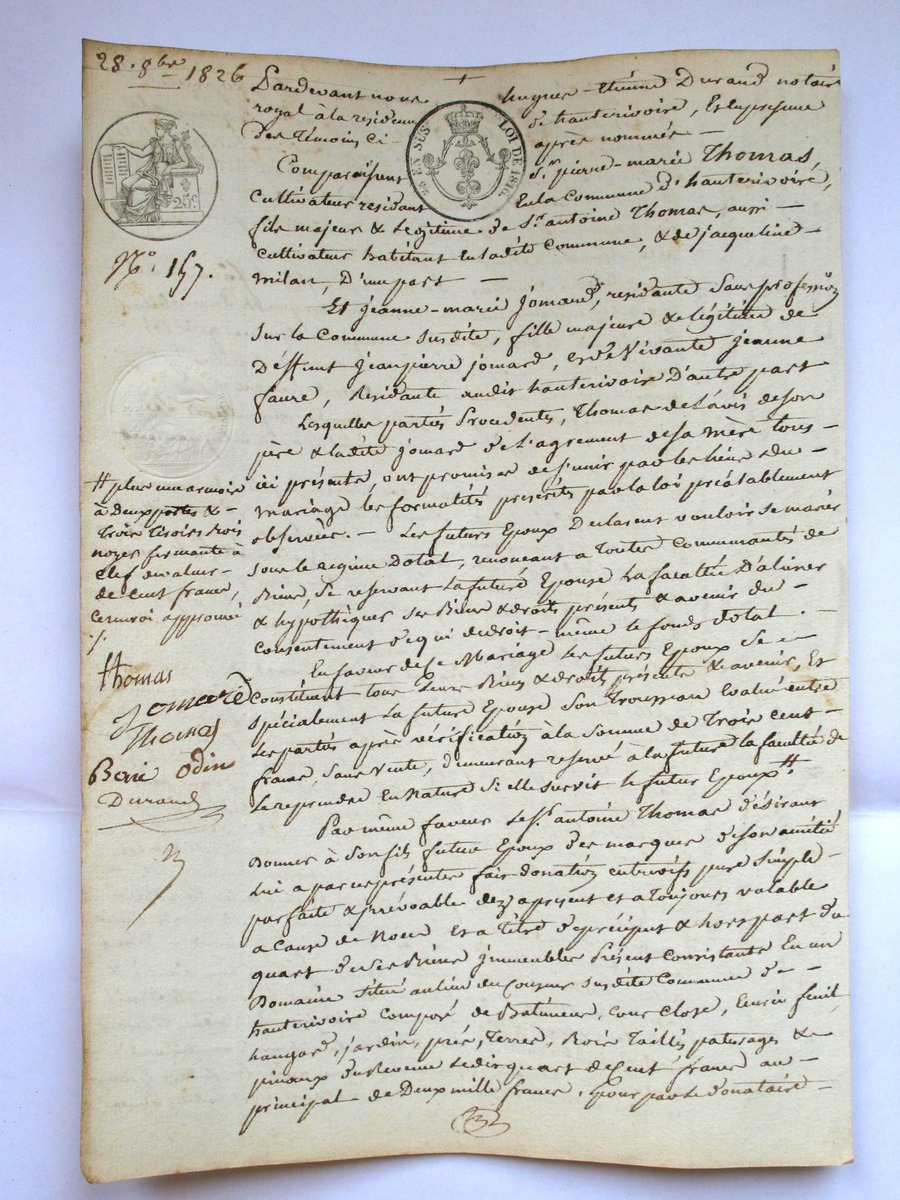 28. 8bre 1826
+
Pardevant nous hugues-étienne Durand notaire
royal à la residence d'hauterivoire, Et en presence
des témoins ci- après nommés —
25 EN SUS LOI DE 1816.
25c
Comparaissent Sr. pierre-marie Thomas,
Cultivateur residant En la Commune d'hauterivoire,
fils majeur & Legitime de Sr. antoine Thomas, aussi —
Cultivateur habitant En ladite Commune, & de jacqueline —
milan, D'une part —
No. 157.
Et jeanne-marie jomard, residante Sans profession
Sur la Commune Susdite, fille majeure & legitime de
Deffunt Jean pierre jomard, et de Vivante jeanne
faure, Residante audit hauterivoire D'autre part
Lesquelles parties Procedentes, Thomas de L'avis de son
père & ladite jomard de L'agrement de sa mère tous —
ici présents, ont promis de S'unir par les liens du —
mariage les formalités prescrites par la loi préalablement
observées. — Les futurs Epoux Declarent vouloir se marier
sous le regime Dotal, renonceant a Toutes Communautés de
Biens, Se reservant La future Epouse La faculté D'aliéner
& hypothéquer Ses Biens & droits présents & avenir du —
Consentement de qui de droit — même le fonds Dotal. —
En faveur de ce Mariage Les futurs Epoux Se —
Constituent tous Leurs Biens & droits présents & avenir, Et
Spécialement La future Epouse Son Trousseau Evalué entre
Les parties après vérification à la Somme de Trois cent —
francs, Sans Vente, demeurant reservé à la future la faculté de
Le reprendre En Nature Si elle survit le futur Epoux #
Par même faveur Le Sr. antoine Thomas désirant
Donner à Son fils futur Epoux des marques de son amitié
Lui a par ces présentes fait donation entrevifs pure Simple —
parfaite & irrévocable dez a present et a Toujours valable
a Cause de Noces Et a Titre de préciput & hors part du
quart de Ses Biens jmmeubles Présent Consistants En un
Domaine Situé au lieu du Susdite Commune d' —
hauterivoire Composé de Batiments, Cour Close, Ecurie fenil,
hangard, jardin, prés, Terres, Bois Taillis paturages &
pinaux du Revenu Ledit quart de Cent francs au —
principal de Deux mille francs, Pour par Le donataire —
# plus une armoire
à Deux portes & —
Trois Tiroirs Bois
noyer fermante à
Clef de valeur —
de Cent francs,
Ce renvoi approuvé
/.
Thomas
Jomard
Thomas
Odin
Durand